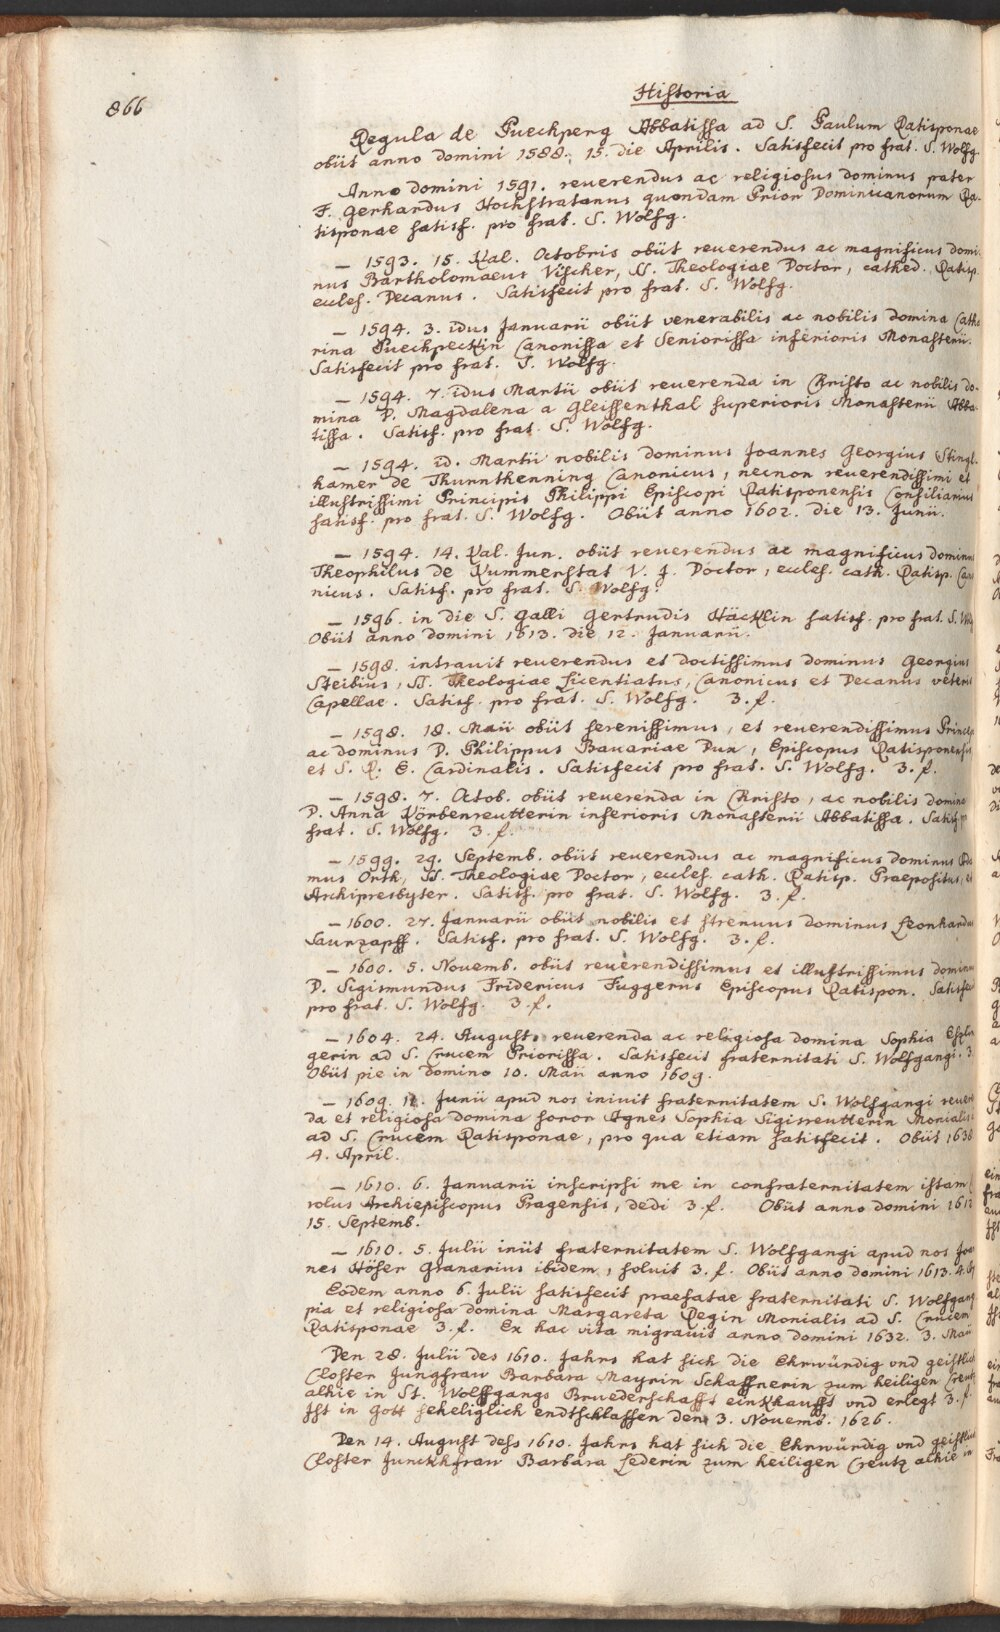 866
Historia
Regula de Pueckperg Abbatissa ad S. Paulum Ratisponae
obiit anno domini 1588. 15. die Aprilis. Satisfecit pro frat. S. Wolfg.
Anno domini 1591. reuerendus ac religiosus dominus pater
F. Gerhardus Hochstratanus quondam Prior Dominicanorum Ra-
tisponae satisf. pro frat. S. Wolfg.
— 1593. 15. Kal. Octobris obiit reuerendus ac magnificus domi-
nus Bartholomaeus Vischer, SS. Theologiae Doctor, cathed. Ratisp.
eccles. Decanus. Satisfecit pro frat. S. Wolfg.
— 1594. 3. idus Januarii obiit venerabilis ac nobilis domina Catha
rina Pueckpeckin Canonissa et Seniorissa inferioris Monasterii.
Satisfecit pro frat. S. Wolfg.
— 1594. 7. idus Martii obiit reuerenda in Christo ac nobilis do-
mina D. Magdalena a Gleissenthal superioris Monasterii Abba-
tissa. Satisf. pro frat. S. Wolfg.
— 1594. id. Martii nobilis dominus Joannes Georgius Stingl-
hamer de Thurnthenning Canonicus, necnon reuerendissimi et
illustrissimi Principis Philippi Episcopi Ratisponensis Consiliarius
satisf. pro frat. S. Wolfg. Obiit anno 1602. die 13. Junii.
— 1594. 14. Kal. Jun. obiit reuerendus ac magnificus dominus
Theophilus de Kummerstat V. J. Doctor, eccles. cath. Ratisp. Ca
nicus. Satisf. pro frat. S. Wolfg.
— 1596. in die S. Galli Gertrudis Häcklin satisf. pro frat. S. Wolfg
Obiit anno domini 1613. die 12. Januarii.
— 1598. intrauit reuerendus et doctissimus dominus Georgius
Steibius, SS. Theologiae Licentiatus, Canonicus et Decanus veteris
Capellae. Satisf. pro frat. S. Wolfg. 3. f.
— 1598. 18. Maii obiit serenissimus, et reuerendissimus Princeps
ac dominus D. Philippus Bauariae Dux, Episcopus Ratisponensis
et S. R. E. Cardinalis. Satisfecit pro frat. S. Wolfg. 3. f.
— 1598. 7. Octob. obiit reuerenda in Christo, ac nobilis domina
D. Anna Körbenreutterin inferioris Monasterii Abbatissa. Satisf. p
frat. S. Wolfg. 3. f.
— 1599. 29. Septemb. obiit reuerendus ac magnificus dominus Qui
mus Orth, SS. Theologiae Doctor, eccles. cath. Ratisp. Praepositus, et
Archipresbyter. Satisf. pro frat. S. Wolfg. 3. f.
— 1600. 27. Januarii obiit nobilis et strenuus dominus Leonhardus
Saurzapff. Satisf. pro frat. S. Wolfg. 3. f.
— 1600. 5. Nouemb. obiit reuerendissimus et illustrissimus dominus
D. Sigismundus Fridericus Fuggerus Episcopus Ratispon. Satisfec
pro frat. S. Wolfg. 3. f.
— 1604. 24. August. reuerenda ac religiosa domina Sophia
gerin ad S. Crucem Priorissa. Satisfecit fraternitati S. Wolfgangi. 3
Obiit pie in domino 10. Maii anno 1609.
— 1609. 11. Junii apud nos iniuit fraternitatem S. Wolfgangi reueren
da et religiosa domina soror Agnes Sophia Sigisreutterin Monialis
ad S. Crucem Ratisponae, pro qua etiam satisfecit. Obiit 1638
4. April.
— 1610. 6. Januarii inscripsi me in confraternitatem istam C
rolus Archiepiscopus Pragensis, dedi 3. f. Obiit anno domini 1612
15. Septemb.
— 1610. 5. Julii iniit fraternitatem S. Wolfgangi apud nos Joa
nes Höfer Granarius ibidem, soluit 3. f. Obiit anno domini 1613. 4.
Eodem anno 6. Julii satisfecit praefatae fraternitati S. Wolfgang
pia et religiosa domina Margareta Regin Monialis ad S. Crucem
Ratisponae 3. f. Ex hac vita migrauit anno domini 1632. 3. Maii
Den 28. Julii des 1610. Jahrs hat sich die Ehrwürdig vnd geistlich
Closter Jungfraw Barbara Mayrin Schaffnerin zum heiligen Creutz
alhie in St. Wolffgangs Bruederschafft einkhaufft vnd erlegt 3. f.
Ist in Gott seheliglich endtschlaffen den 3. Nouemb. 1626.
Den 14. August dess 1610. Jahrs hat sich die Ehrwürdig vnd geistlich
Closter Junckhfraw Barbara Lederin zum heiligen Creutz alhie in